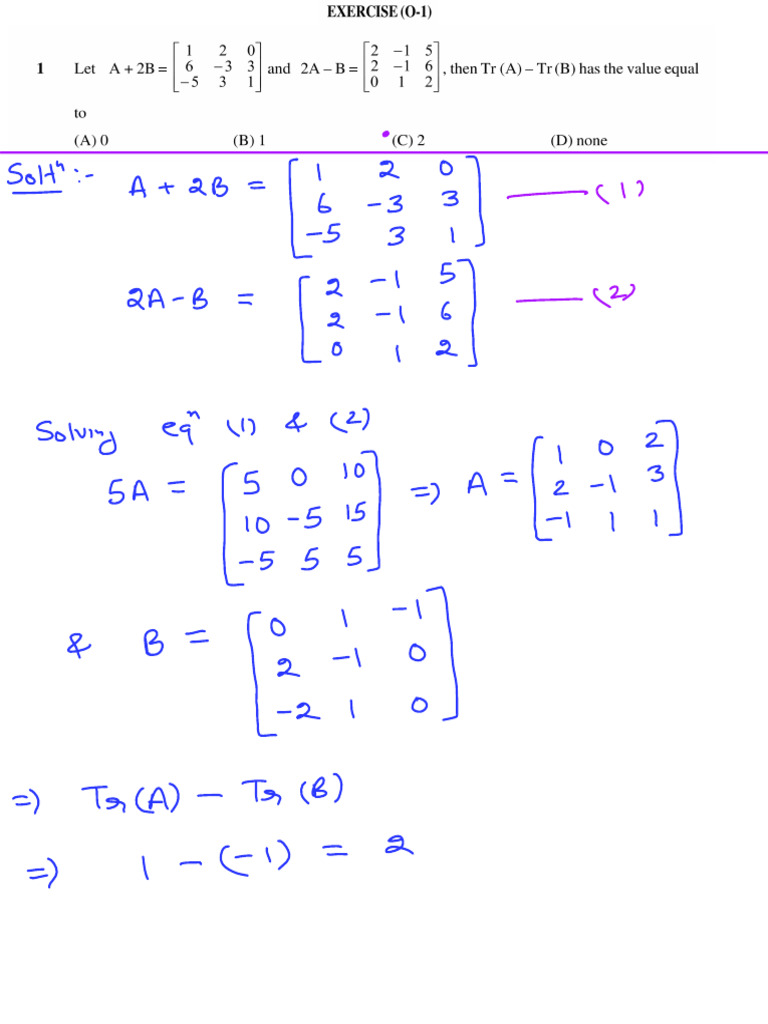 EXERCISE (O-1)
1 Let A + 2B = [1 2 0; 6 −3 3; −5 3 1] and 2A – B = [2 −1 5; 2 −1 6; 0 1 2], then Tr (A) – Tr (B) has the value equal
to
(A) 0 (B) 1 (C) 2 (D) none
Solⁿ :- A + 2B = [1 2 0; 6 -3 3; -5 3 1] —— (1)
2A - B = [2 -1 5; 2 -1 6; 0 1 2] —— (2)
Solving eqⁿ (1) & (2)
5A = [5 0 10; 10 -5 15; -5 5 5] => A = [1 0 2; 2 -1 3; -1 1 1]
& B = [0 1 -1; 2 -1 0; -2 1 0]
=> Tr (A) - Tr (B)
=> 1 - (-1) = 2